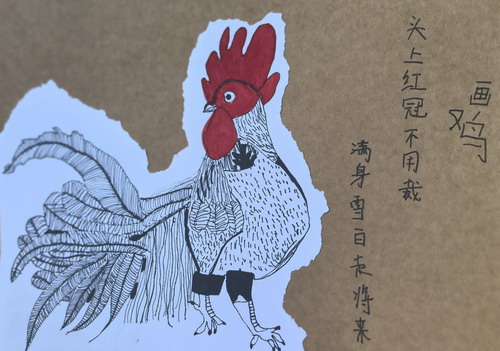 画鸡
头上红冠不用裁
满身雪白走将来